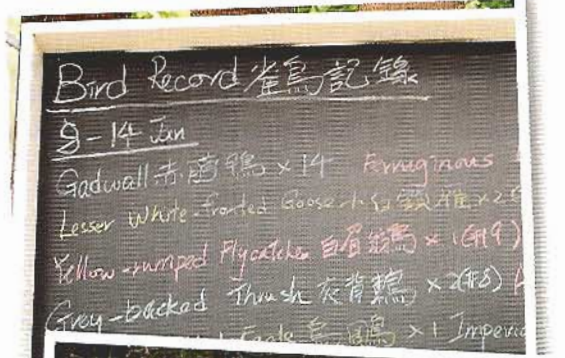 Bird Record 雀鳥記錄
8-14 Jan
Gadwall 赤膀鴨 ×14 Ferruginous
Lesser White-fronted Goose 小白額雁 ×2
Yellow-rumped Flycatcher 白眉鶲 ×1(#9)
Grey-backed Thrush 灰背鶇 ×2(#8)
Eagle 鵰 ×1 Imperia